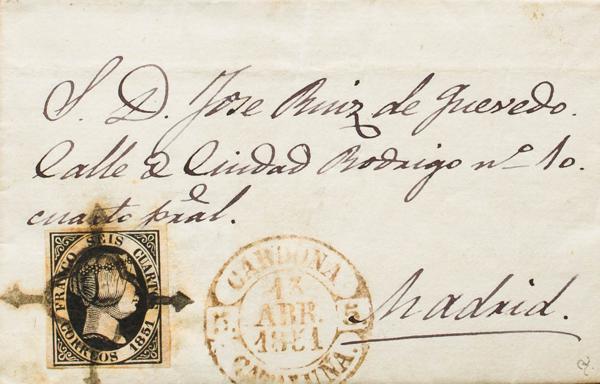 S. D. Jose Ruiz de Quevedo.
Calle de Ciudad Rodrigo nº 10.
cuarto pral.
Madrid.
FRANCO SEIS CUARTOS
CORREOS 1851
CARDONA
13
ABR.
1851
5 5
CATALUÑA.